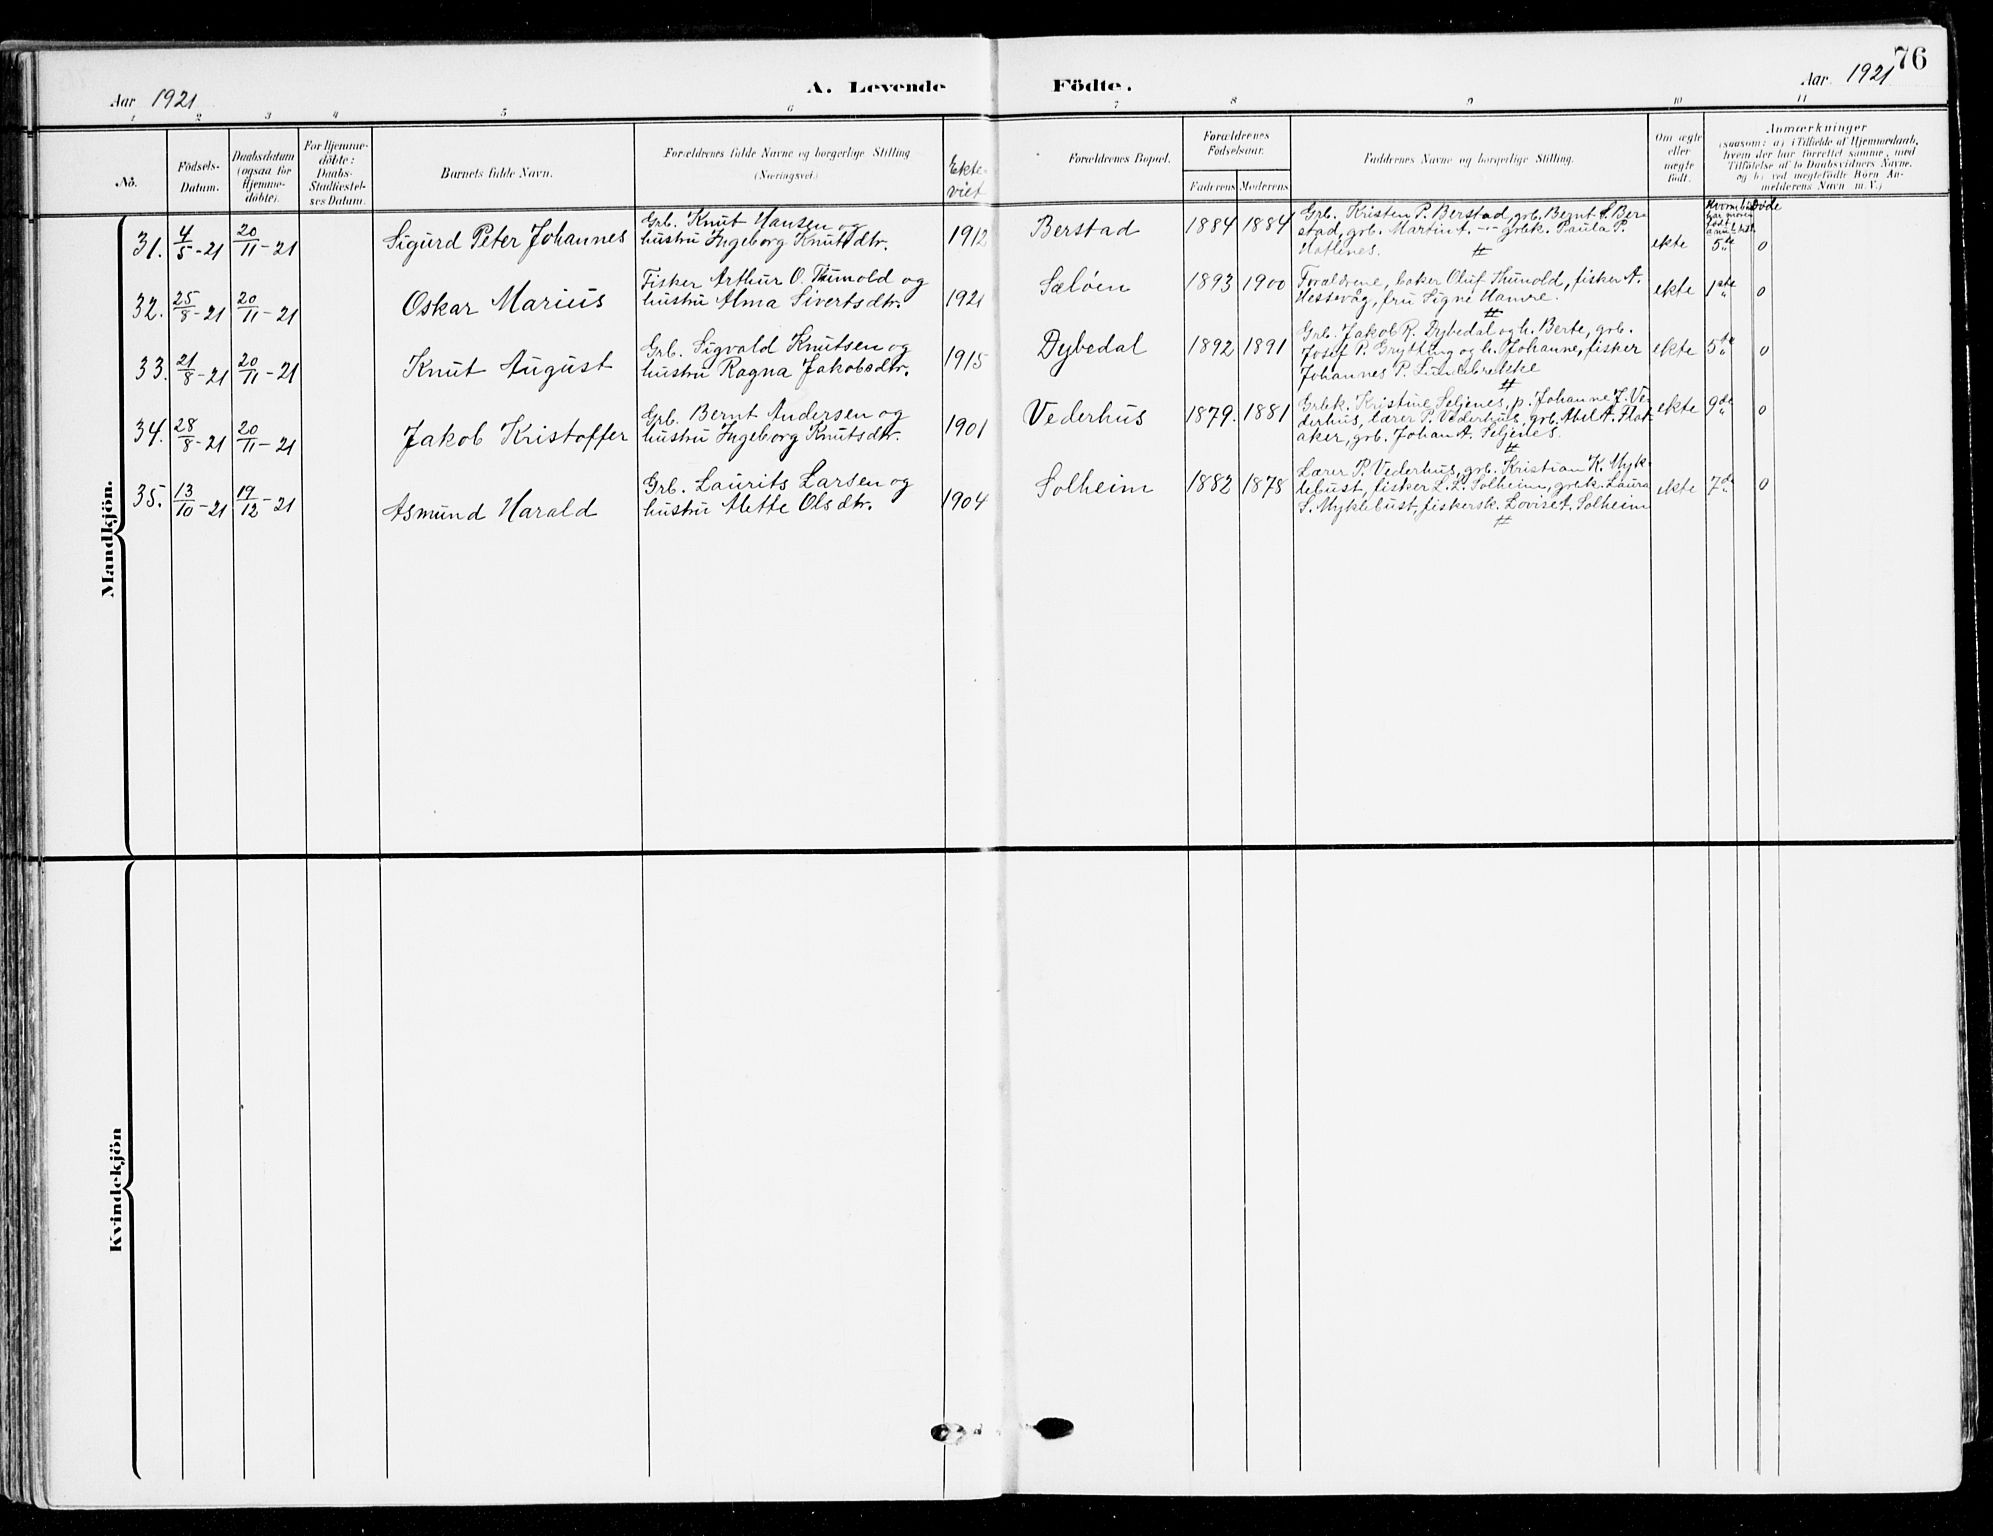 76
Aar 1921
A. Levende Födte.
Aar. 1921
1 2 3 4 5 6 7 8 9 10 11
No.
Födsels-
Datum.
Daabsdatum
(ogsaa for
Hjemme-
döbte).
For Hjemme-
döbte:
Daabs-
Stadfæstel-
ses Datum.
Barnets fulde Navn.
Forældrenes fulde Navne og borgerlige Stilling
(Næringsvei.)
Ekte-
viet
Forældrenes Bopæl.
Forældrenes
Födselsaar.
Faderens Moderens
Faddernes Navne og borgerlige Stilling.
Om ægte
eller
uægte
födt.
Anmærkninger
(saasom: a) i Tilfælde af Hjemmedaab,
hvem der har forrettet samme, med
Tilföielse af to Daabsvidners Navne.
og b) ved uægtefödte Börn An-
melderens Navn m. V.)
Døde
Mandkjön.
31. 4/5-21 20/11-21
Sigurd Peter Johannes
Grb. Knut Hansen og
hustru Ingeborg Knutsdtr.
1912
Berstad
1884 1884
Grb. Kristen P. Berstad, grb. Bernt S. Ber-
stad, grb. Martin A. -"- grbk. Paula P.
Hatlenes.
#
ekte
5te
0
32. 25/8-21 20/11-21
Oskar Marius
Fisker Arthur O. Thunold og
hustru Alma Sivertsdtr.
1921
Sæløen
1893 1900
Forældrene, baker Oluf Thunold, fisker A.
Hessevåg, fru Signe Hamre.
#
ekte
1ste
0
33. 21/8-21 20/11-21
Knut August
Grb. Sigvald Knutsen og
hustru Ragna Jakobsdtr.
1915
Dybedal
1892 1891
Grb. Jakob R. Dybedal og h. Berte, grb.
Josef P. Grytting og h. Johanne, fisker
Johannes P. Lundebrekke
#
ekte
5te
0
34. 28/8-21 20/11-21
Jakob Kristoffer
Grb. Bernt Andersen og
hustru Ingeborg Knutsdtr.
1901
Vederhus
1879. 1881
Grbk. Kristine Seljenes, p. Johanne J. Ve-
derhus, lærer P. Vederhus, grb. Abel A. Flat-
aker, grb. Johan A. Seljenes.
#
ekte
9de
0
35. 13/10-21 19/12-21
Asmund Harald
Grb. Laurits Larsen og
hustru Mette Olsdtr.
1904
Solheim
1882 1878
Lærer P. Vederhus, grb. Kristian K. Myk-
lebust, fisker L. L. Solheim, grbk. Laura
S. Myklebust, fiskersk. Lovise A. Solheim
#
ekte
7de
0
Kvindekjön